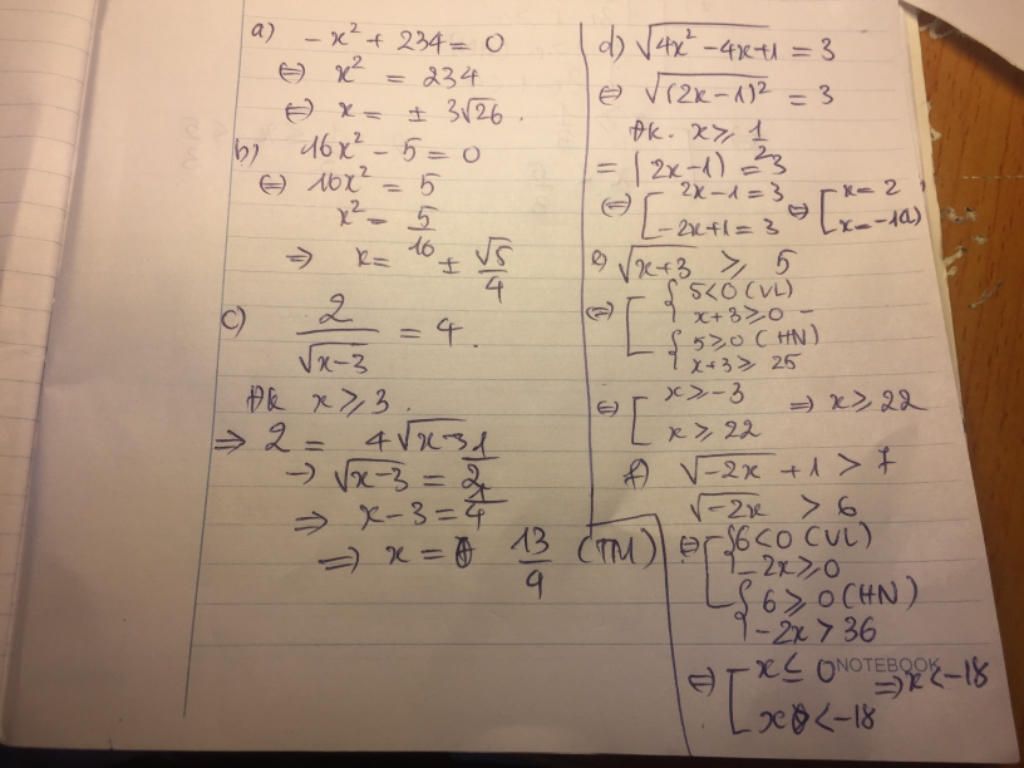 a) -x² + 234 = 0
⇔ x² = 234
⇔ x = ± 3√26.
b) 16x² - 5 = 0
⇔ 16x² = 5
x² = 5/16
⇒ x = ± √5/4
c) 2/√(x-3) = 4.
ĐK x ≥ 3.
⇒ 2 = 4√(x-3)
→ √(x-3) = 1/2
⇒ x-3 = 1/4
⇒ x = 13/4 (TM)
d) √(4x² - 4x+1) = 3
⇔ √((2x-1)²) = 3
ĐK. x ≥ 1/2
= |2x-1) = 3
⇔ [ 2x-1 = 3 ⇔ [ x = 2
-2x+1 = 3 x = -1
e) √(x+3) ≥ 5
⇔ [ { 5<0 (VL)
x+3 ≥ 0
{ 5≥0 (HN)
x+3 ≥ 25
⇔ [ x ≥ -3 ⇒ x ≥ 22
x ≥ 22
f) √(-2x) + 1 > 7
√(-2x) > 6
⇔ [ { 6<0 (VL)
-2x ≥ 0
{ 6 ≥ 0 (HN)
-2x > 36
NOTEBOOK
⇔ [ x ≤ 0 ⇒ x < -18
x < -18